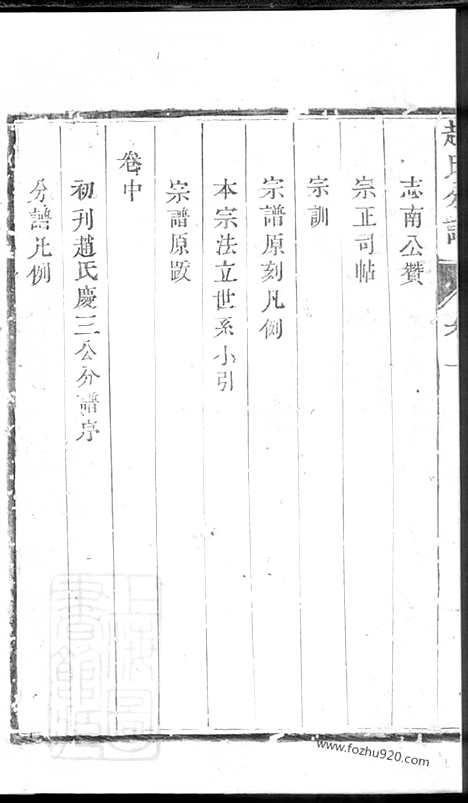 趙氏分譜
志南公贊
宗正司帖
宗訓
宗譜原刻凡例
本宗法立世系小引
宗譜原跋
卷中
初刊趙氏慶三公分譜序
分譜凡例
www.fozhu920.com